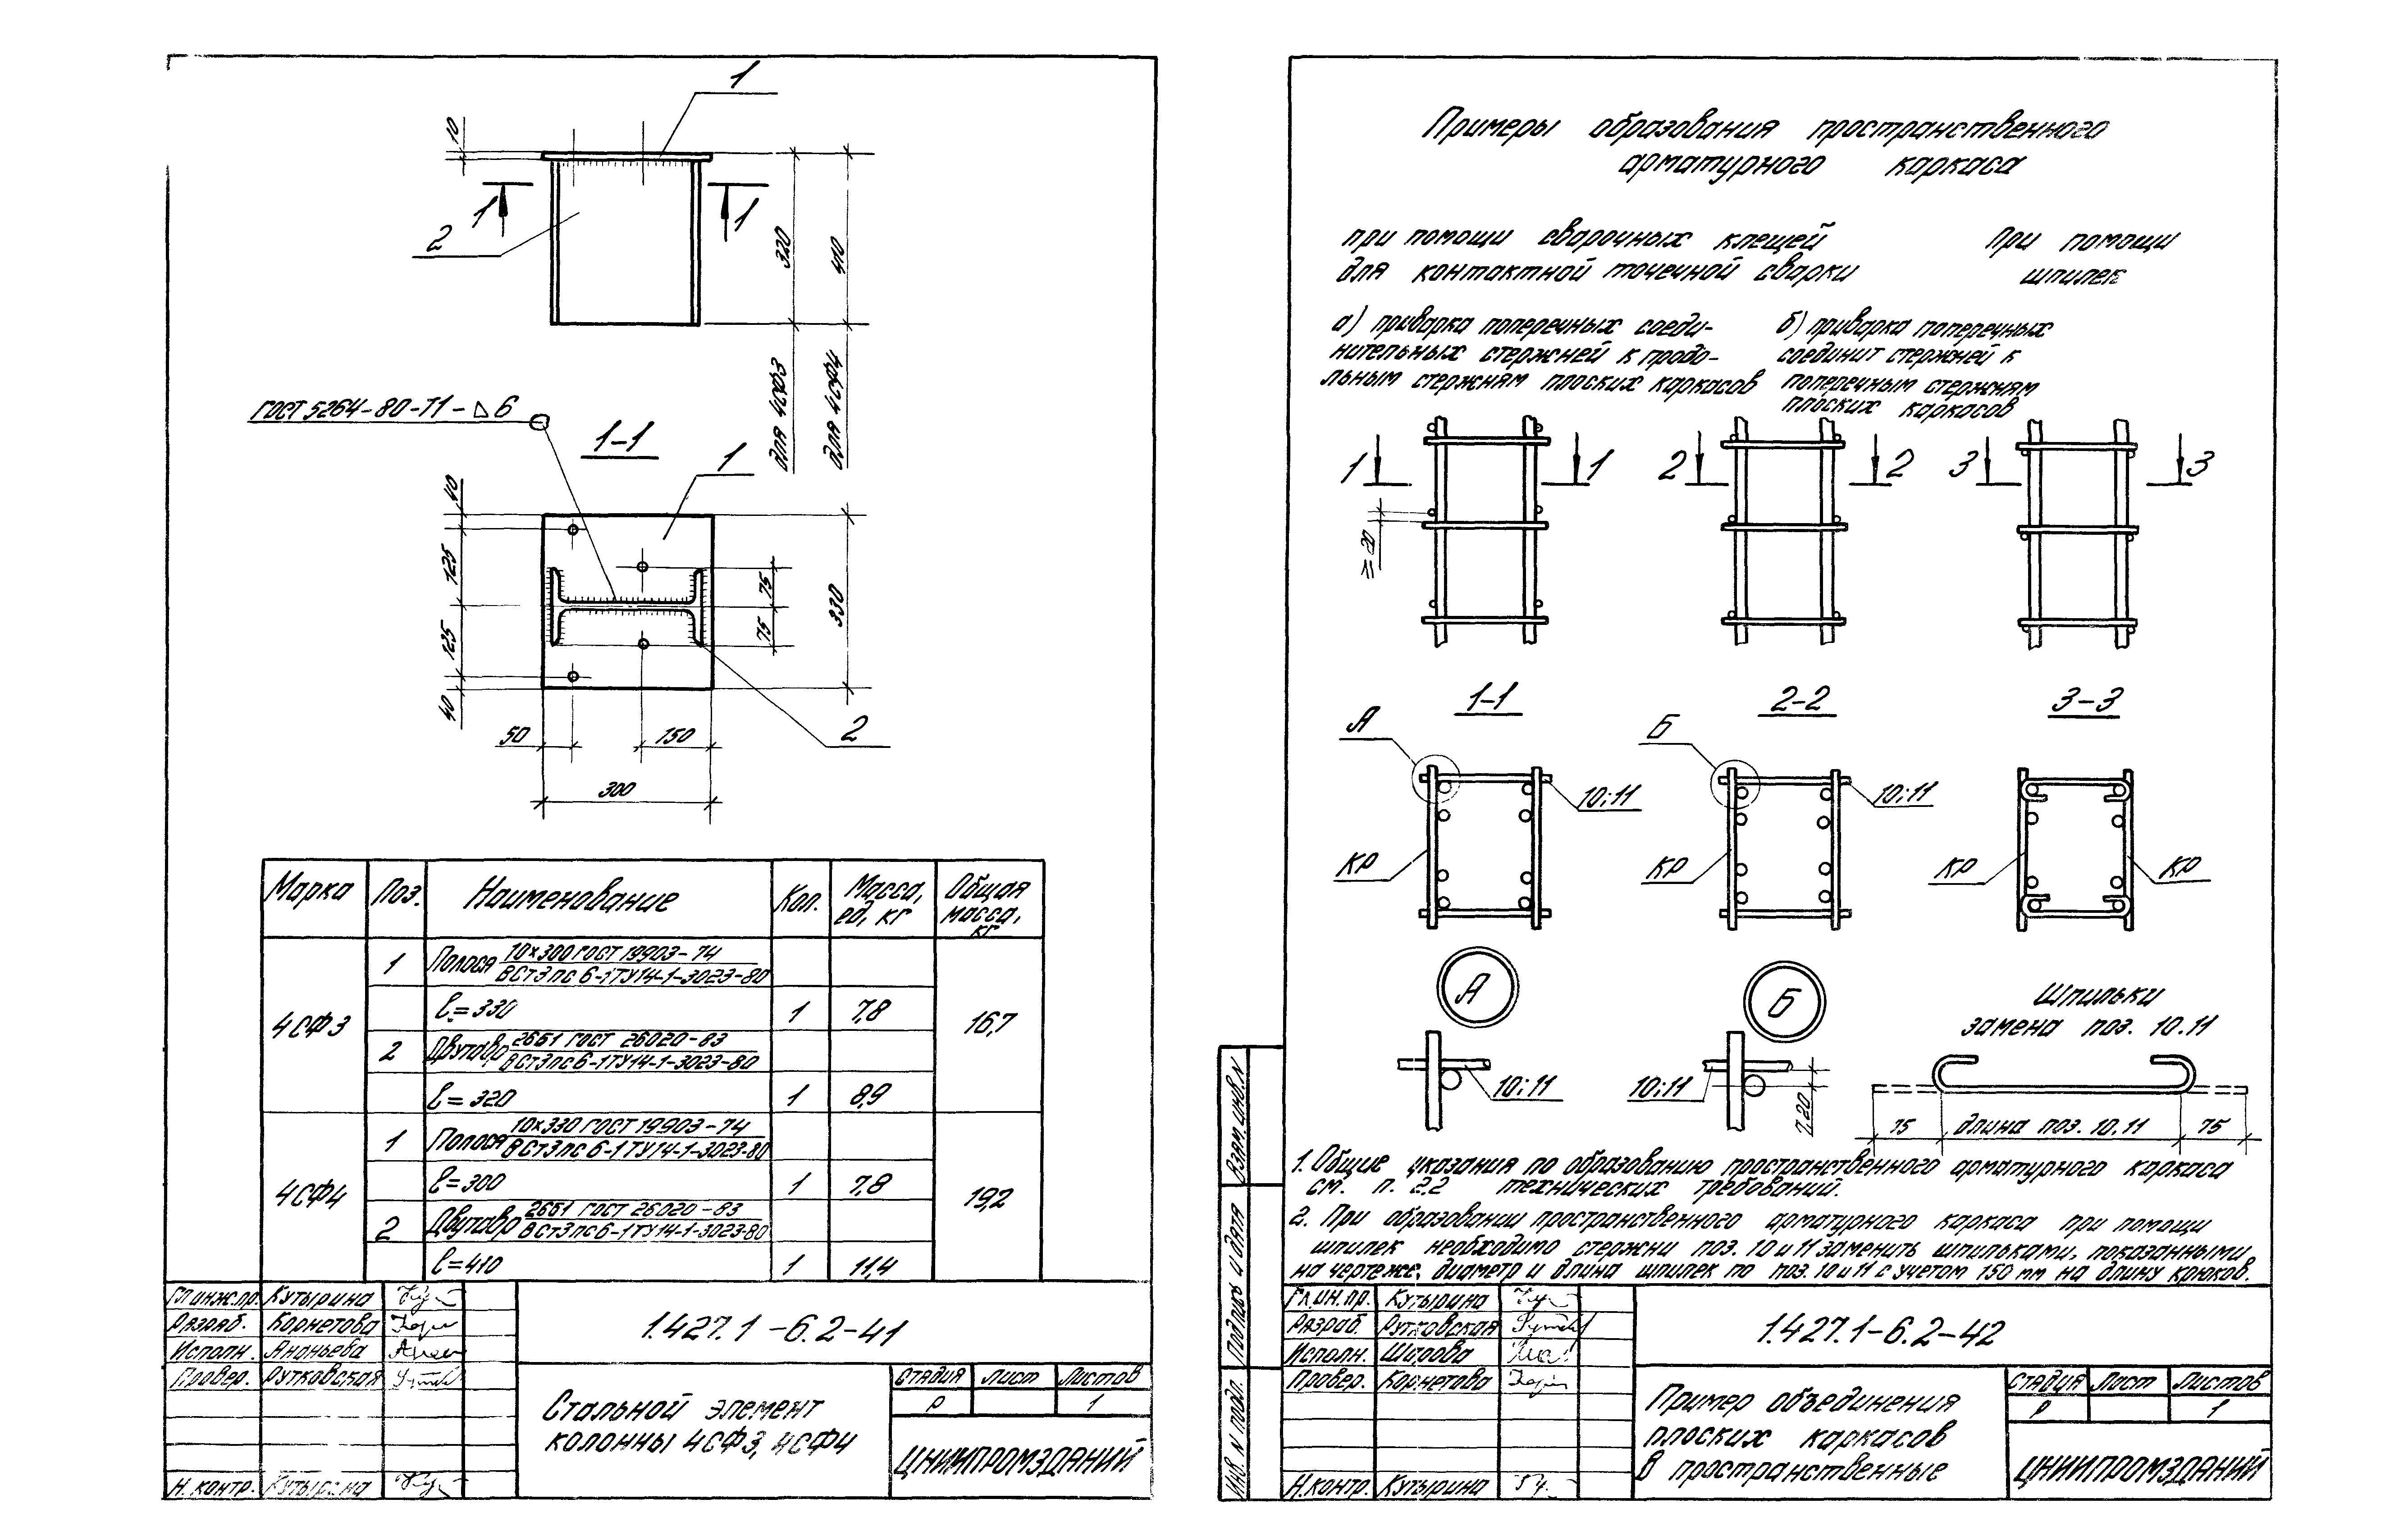 1
10
1
1
2
320
410
для 4СФ3
для 4СФ4
ГОСТ 5264-80-Т1-△6
1-1
1
40
125
125
40
75
75
330
50
150
2
300
Марка
Поз.
Наименование
Кол.
Масса, ед, кг
Общая масса, кг
4СФ3
1
Полоса 10×300 ГОСТ 19903-74
ВСт3пс6-1ТУ14-1-3023-80
ℓ=330
1
7,8
16,7
2
Двутавр 26Б1 ГОСТ 26020-83
ВСт3пс6-1ТУ14-1-3023-80
ℓ=320
1
8,9
4СФ4
1
Полоса 10×330 ГОСТ 19903-74
ВСт3пс6-1ТУ14-1-3023-80
ℓ=300
1
7,8
19,2
2
Двутавр 26Б1 ГОСТ 26020-83
ВСт3пс6-1ТУ14-1-3023-80
ℓ=410
1
11,4
Гл инж.пр. Кутырина
Разраб. Корнетова
Исполн. Ананьева
Провер. Рутковская
Н. контр. Кутырина
1.427.1-6.2-41
Стальной элемент
колонны 4СФ3, 4СФ4
Стадия Лист Листов
Р 1
ЦНИИПРОМЗДАНИЙ
Примеры образования пространственного
арматурного каркаса
при помощи сварочных клещей
для контактной точечной сварки
при помощи
шпилек
а) приварка поперечных соеди-
нительных стержней к продо-
льным стержням плоских каркасов
б) приварка поперечных
соединит стержней к
поперечным стержням
плоских каркасов
1 1
2 2
3 3
≥20
1-1
2-2
3-3
А
10;11
КР
Б
10;11
КР
КР
КР
А
10;11
Б
10;11
Шпильки
замена поз. 10.11
75 длина поз. 10.11 75
1. Общие указания по образованию пространственного арматурного каркаса
см. п. 2.2 технических требований.
2. При образовании пространственного арматурного каркаса при помощи
шпилек необходимо стержни поз. 10 и 11 заменить шпильками, показанными
на чертеже, диаметр и длина шпилек по поз. 10 и 11 с учетом 150 мм на длину крюков.
Взам. инв. N
Подпись и дата
Инв. N подл.
Гл.ин.пр. Кутырина
Разраб. Рутковская
Исполн. Шарова
Провер. Корнетова
Н.контр. Кутырина
1.427.1-6.2-42
Пример объединения
плоских каркасов
в пространственные
Стадия Лист Листов
Р 1
ЦНИИПРОМЗДАНИЙ